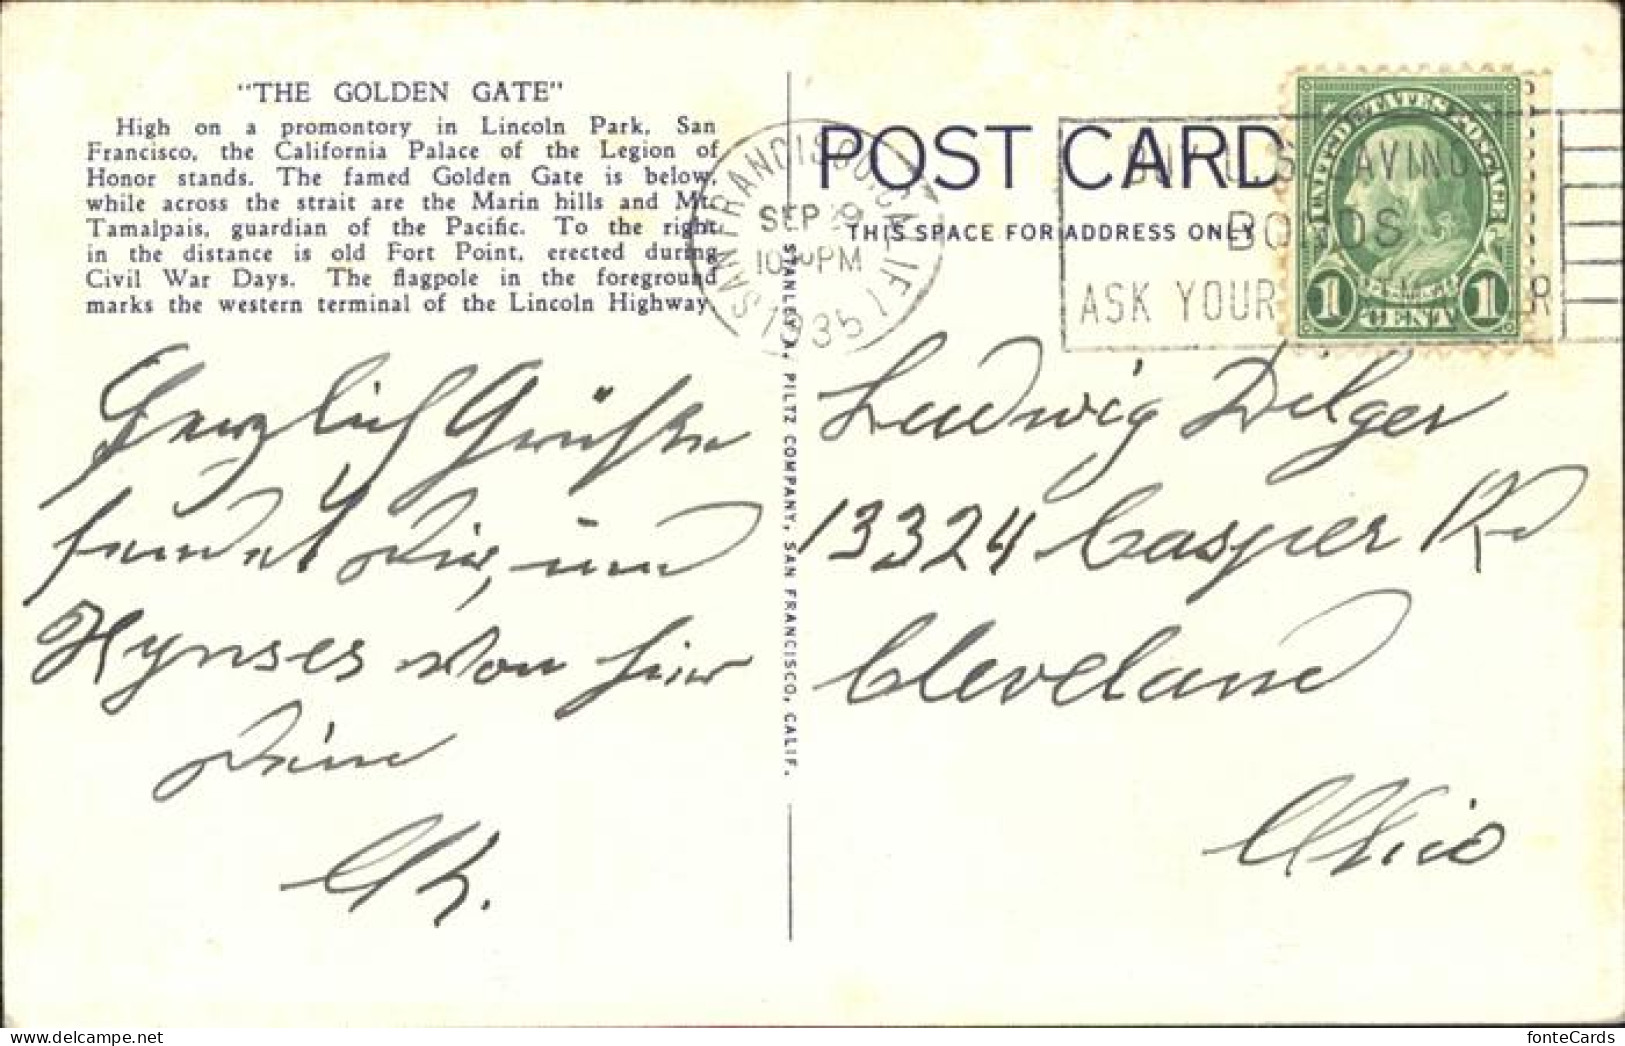 "THE GOLDEN GATE"
High on a promontory in Lincoln Park, San
Francisco, the California Palace of the Legion of
Honor stands. The famed Golden Gate is below,
while across the strait are the Marin hills and Mt.
Tamalpais, guardian of the Pacific. To the right
in the distance is old Fort Point, erected during
Civil War Days. The flagpole in the foreground
marks the western terminal of the Lincoln Highway.
Herzlich Grüße
sendet Dir, und
von hier
STANLEY A. PILTZ COMPANY, SAN FRANCISCO, CALIF.
SAN FRANCISCO, CALIF.
SEP
PM
1935
POST CARD
THIS SPACE FOR ADDRESS ONLY
SAVINGS
BONDS
ASK YOUR
UNITED STATES POSTAGE
1 CENT 1
Ludwig Dilger
13324 Casper Rd
Cleveland
Ohio
fonteCards